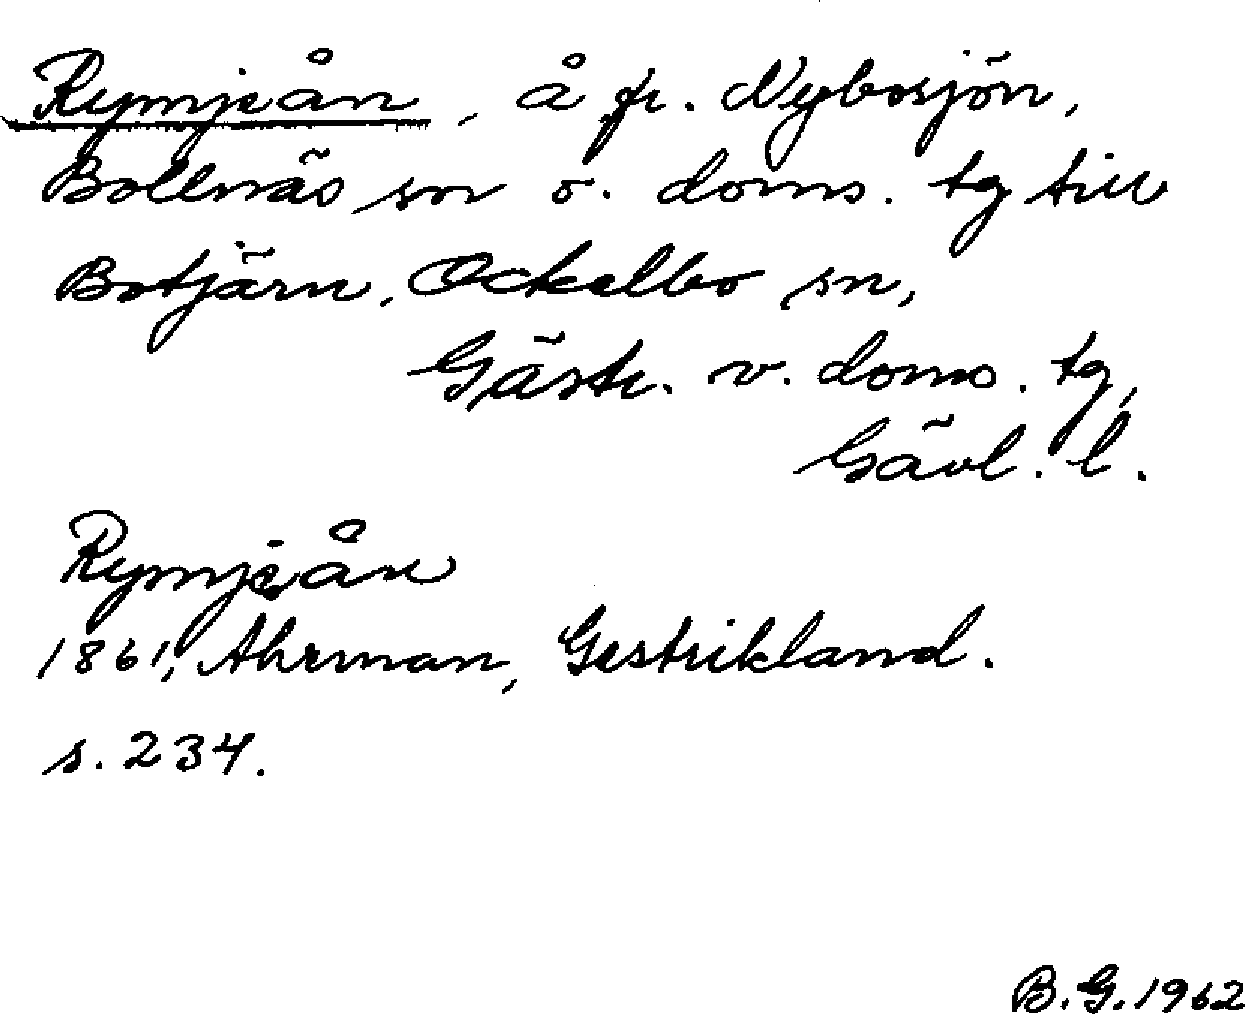 Rymjeån, å fr. Nybosjön,
Bollnäs sn o. doms. tg till
Botjärn, Ockelbo sn,
Gästr. v. doms. tg,
Gävl. l.
Rymjeån
1861, Ahrman, Gestrikland.
s. 234.
B.G. 1962